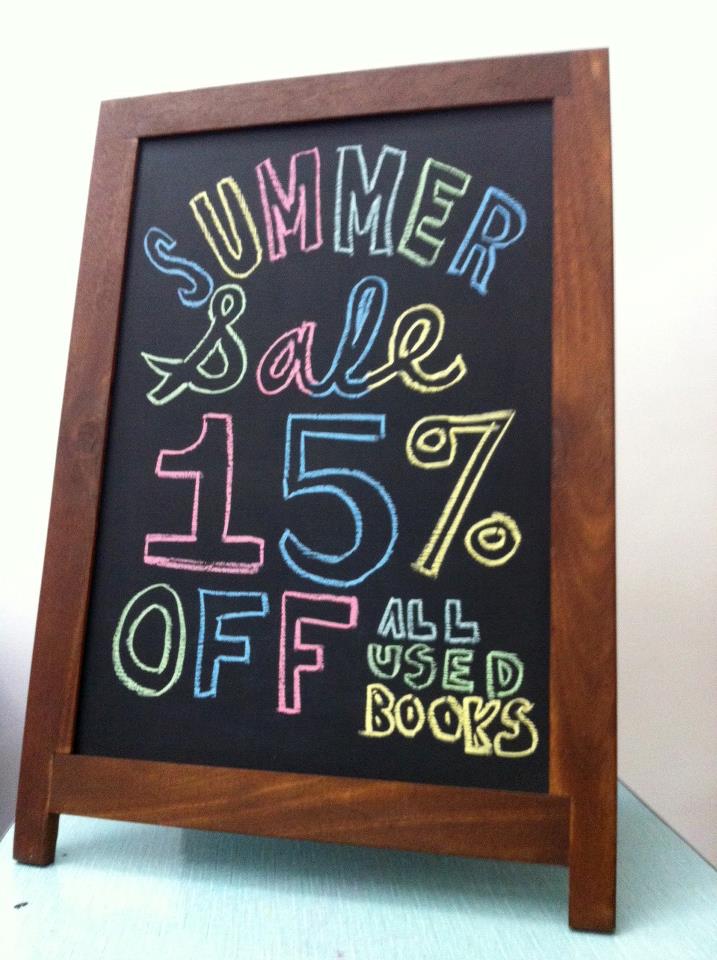 SUMMER
Sale
15%
OFF
ALL
USED
BOOKS